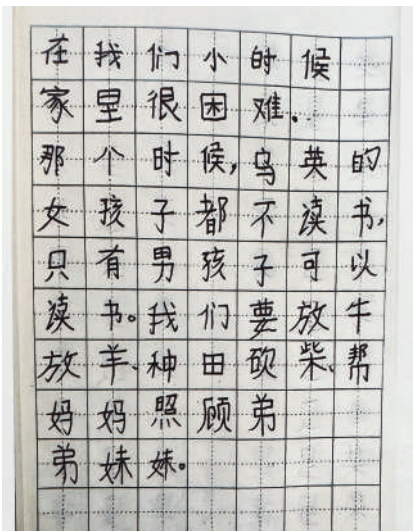 在我们小时候
家里很困难。
那个时候,乌英的
女孩子都不读书,
只有男孩子可以
读书。我们要放牛
放羊、种田砍柴、帮
妈妈照顾弟
弟妹妹。